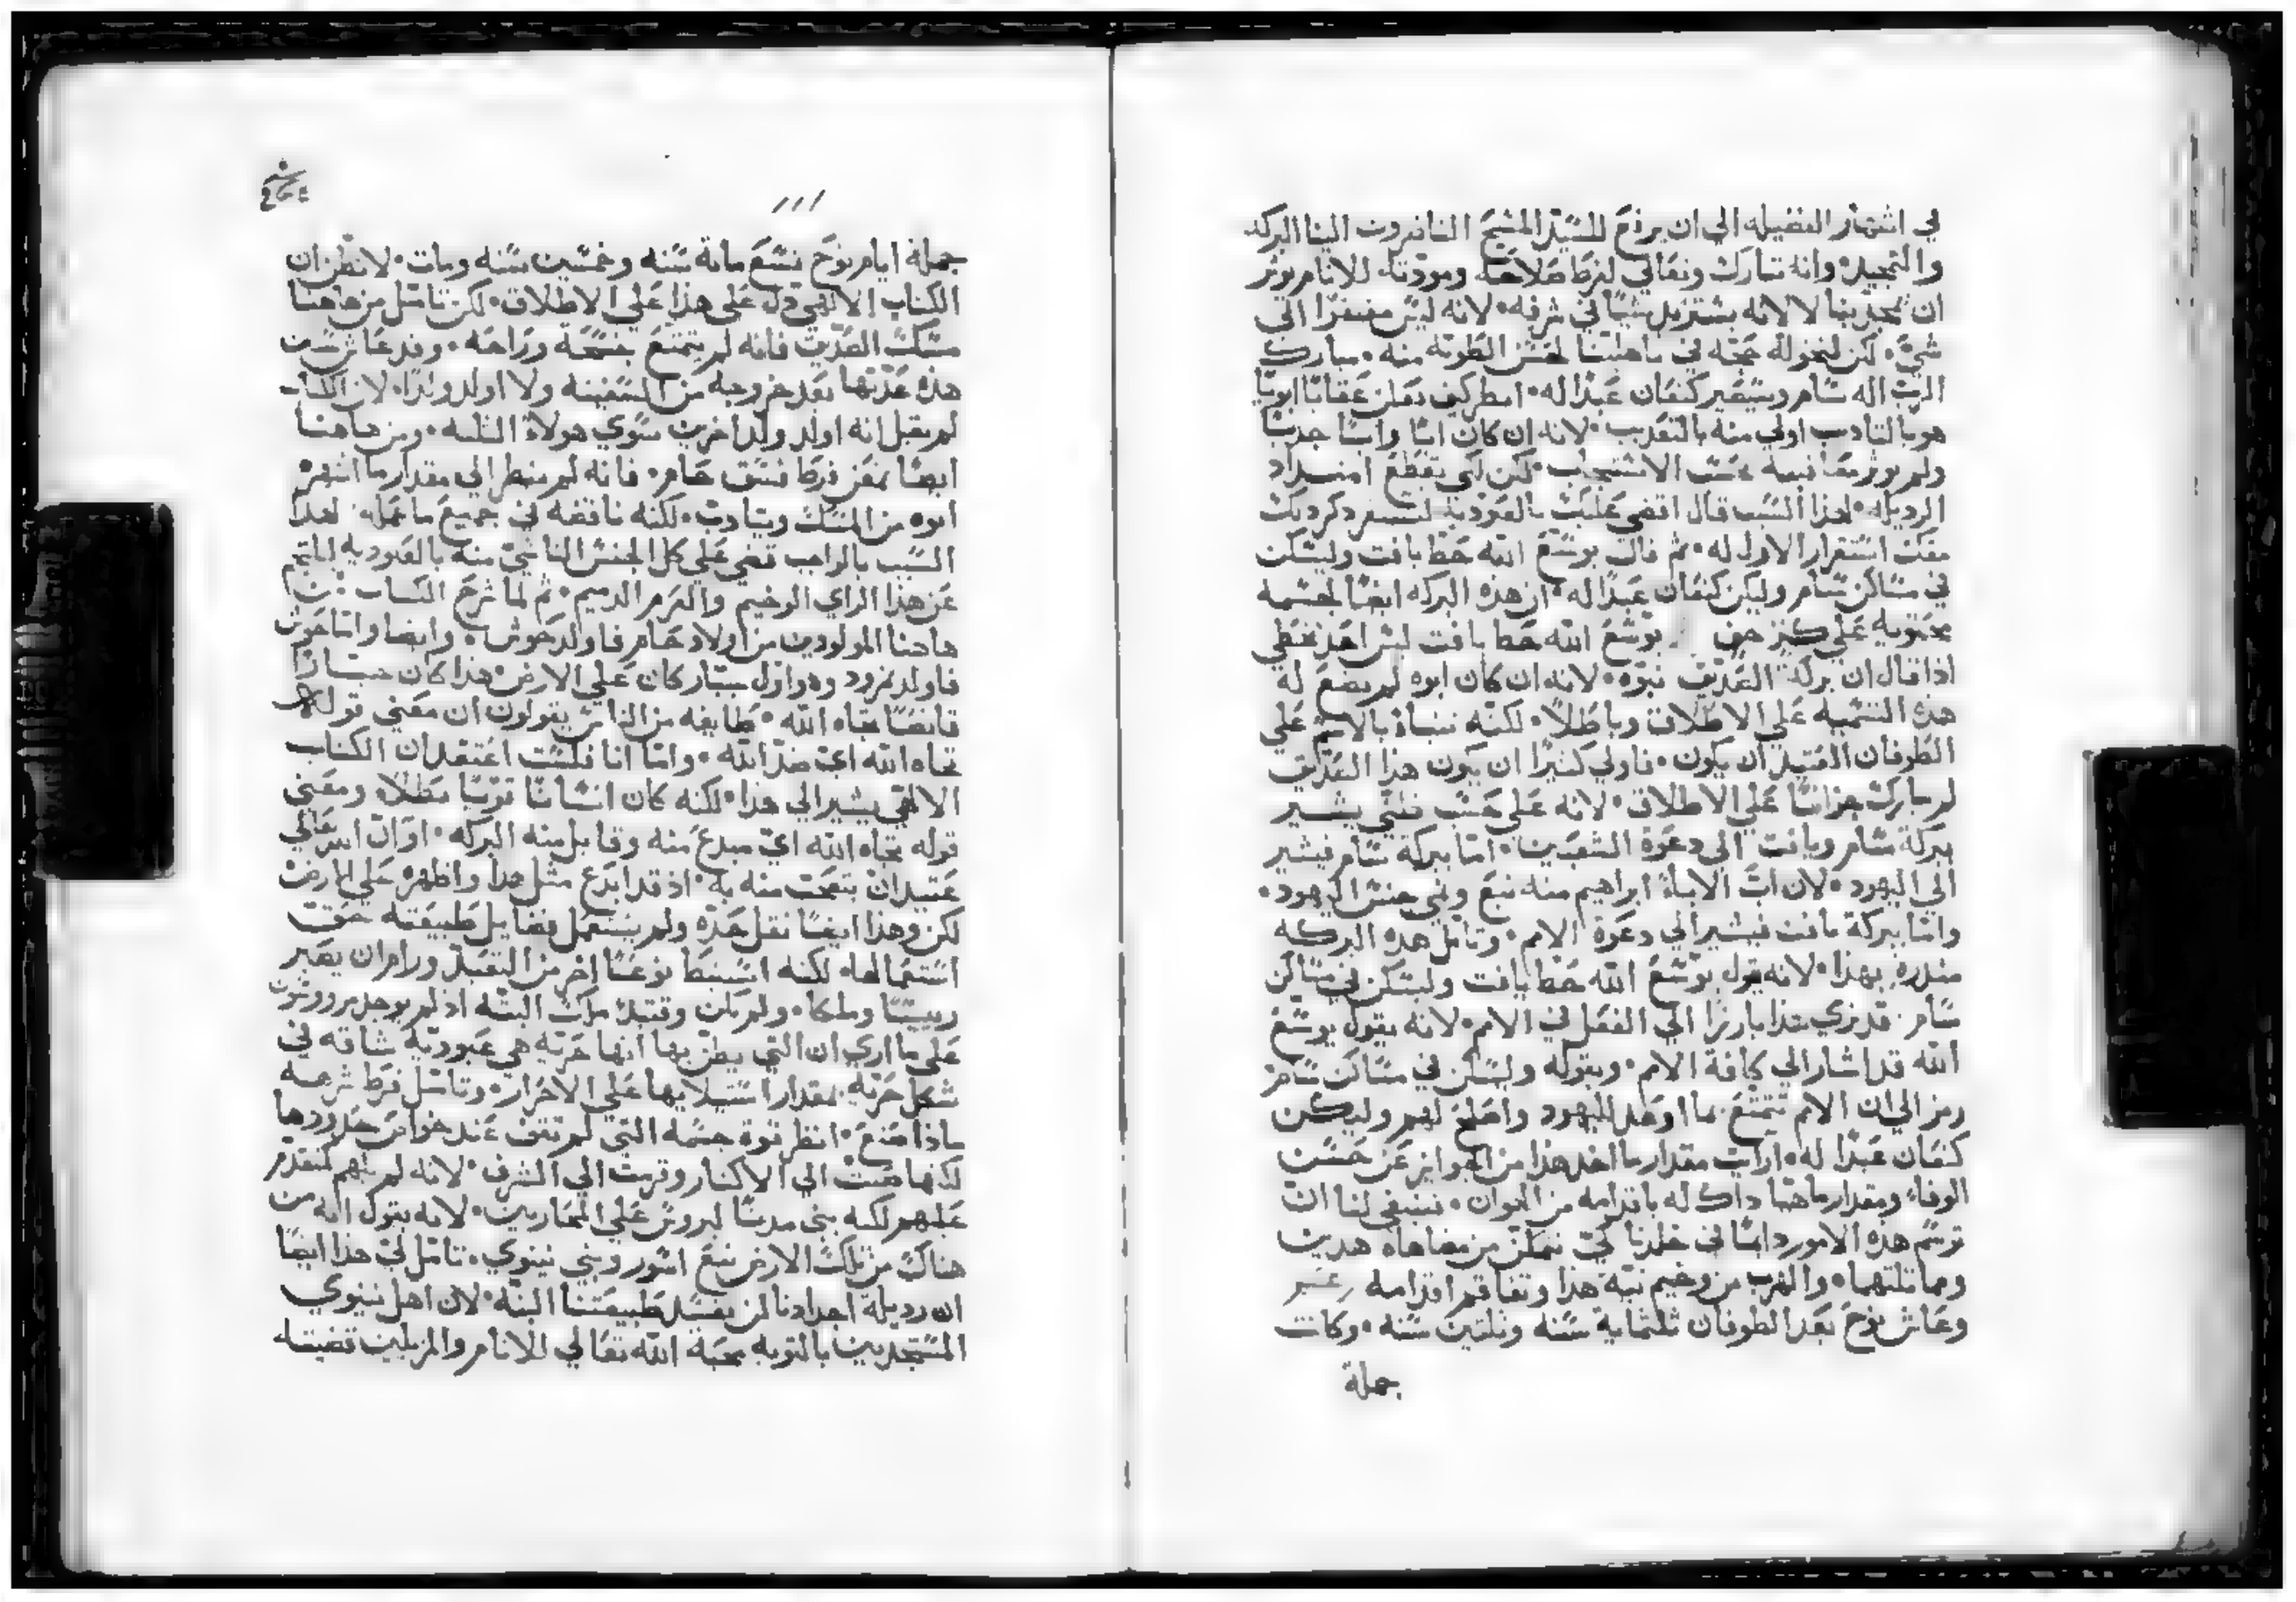 في اشتهار الفضيله الي ان يرفع للسيد المسيح النافروت الينا البركه
والتمجيد وانه تبارك وتعالي لفرط صلاحه ومودته للانام يوثر
ان يمجد بنا لا لانه يستزيد شيا في شرفه لانه ليس مفتقرا الي
شي لكن ليخوله حجه في تاهلينا لحسن الطوبه منه مبارك
الرب اله سام وسيصير كنعان عبدا له انظر كيف عقابا ابويا
هو بالتاديب اولي منه بالتعذيب لانه ان كان ابا وابا حدبا
ولم يوثر معاقبته بحسب الاستيجاب لكن لكي يقطع امتداد
الرديله لهذا السبب قال اقضي عليك بالعبوديه
استقرار الاول له ثم قال يوسع الله حظ يافت وليسكن
في مساكن سام وليكن كنعان عبدا له ان هذه البركه ايضا
محتويه علي كنز يوسع الله حظ يافت ليس احد يخطي
اذا قال ان بركة الصديق نبوه لانه ان كان ابوه لم يضع له
هذه التسميه علي الاطلاق وباطلا لكنه تنبا بالاسم علي
الطوفان العتيد ان يكون فاولي كثيرا ان يكون هذا الصديق
لم يبارك جزافا علي الاطلاق لانه علي حسب ظني يشير
ببركة سام ويافت الي دعوة الشعبين اما ببركة سام فيشير
الي اليهود لان اب الاباء ابراهيم منه نبع وني جنس اليهود
واما ببركة يافت فيشير الي دعوة الامم وتامل هذه البركه
منذره بهذا لانه يقول يوسع الله حظ يافت وليسكن في مساكن
سام قد نري هذا بارزا الي الفعل في الامم لانه بقول يوسع
الله قد اشار الي كافة الامم وبقوله وليسكن في مساكن سام
رمز الي ان الامم تتمتع بما لليهود واصلح لهم وليكن
كنعان عبدا له ارايت مقدار ما اخذ هذا من الجوايز عن حسن
الوفاء ومقدار ما هيا ذاك له باقدامه من الهوان فينبغي لنا ان
نرسم هذه الامور دايما في خلدنا كي نتمكن من مضاهاه هذين
ومماثلتهما والهرب من وخيم نية هذا وتفاقم اقدامه
وعاش نوح بعد الطوفان ثلثماية سنه وثلثين سنه وكانت
جملة
١١١
جملة ايام نوح تسع ماية سنه وخمسين سنه ومات لا تظن ان
الكتاب الالهي دل علي هذا علي الاطلاق لكن تامل من هاهنا
مسك الصديق فانه لم يتمتع بفسحة وراحه وقد عاش سنين
هذه عدتها بعد خروجه من السفينه ولا اولد ولدا لان الكتاب
لم يقل انه اولد ولدا اخرين سوي هولاء الثلثه ومن هاهنا
ايضا فرط فسق حام فانه لم ينظر الي مقدار ما اشتهر
ابوه من النسك ويتادب لكنه ناقضه في جميع ما عمله لهذا
السبب بالواجب قضي علي كل الجنس الناشي منه بالعبوديه
عن هذا الراي الوخيم والعزم الذميم ثم لما شرح الكتاب
هاهنا المولودين من اولاد حام فاولد حوش وايضا واما حوش
فاولد نمرود وهو اول جبار كان علي الارض هذا كان جبارا
قانصا تجاه الله طايفه من الناس يقولون ان معني قوله
تجاه الله اي ضد الله واما انا فلست اعتقد ان الكتاب
الالهي يشير الي هذا لكنه كان انسانا قويا مطلا ومعني
قوله تجاه الله اي مبدع منه وقابل منه البركه او ان
عتيد ان يتعجب منه به اذ قد ابدع مثل هذا واظهره علي الارض
لكن وهذا ايضا نقل جده ولم يستعمل فضايل طبيعته حق
استعمالها لكنه استنبط نوعا اخر من التعبد ورام ان يصير
رييسا وملكا ولم يكن وقتيذ ملك البته اذ لم يوجد
علي ما اري ان التي يظن بها انها حريه هي عبوديه شاقه في
شكل حريه بمقدار استيلايها علي الاحرار وتامل فرط شرهه
ماذا صنع انظر قوة جسمه التي لم تقف عند خواص حدودها
لكنها الي الاكثار الي الشرف لانه لم لمتقدم
عليهم لكنه بني مدينا ليروس علي المحاربين لانه يقول انه من
هناك من تلك الارض نبع اشور وبني نينوي تامل لي هذا ايضا
ان رديلة اجدادنا لن تفسد طبيعتنا البته لان اهل نينوي
المستجدين بالتوبه محبة الله تعالي للانام والمزيلين قضيته